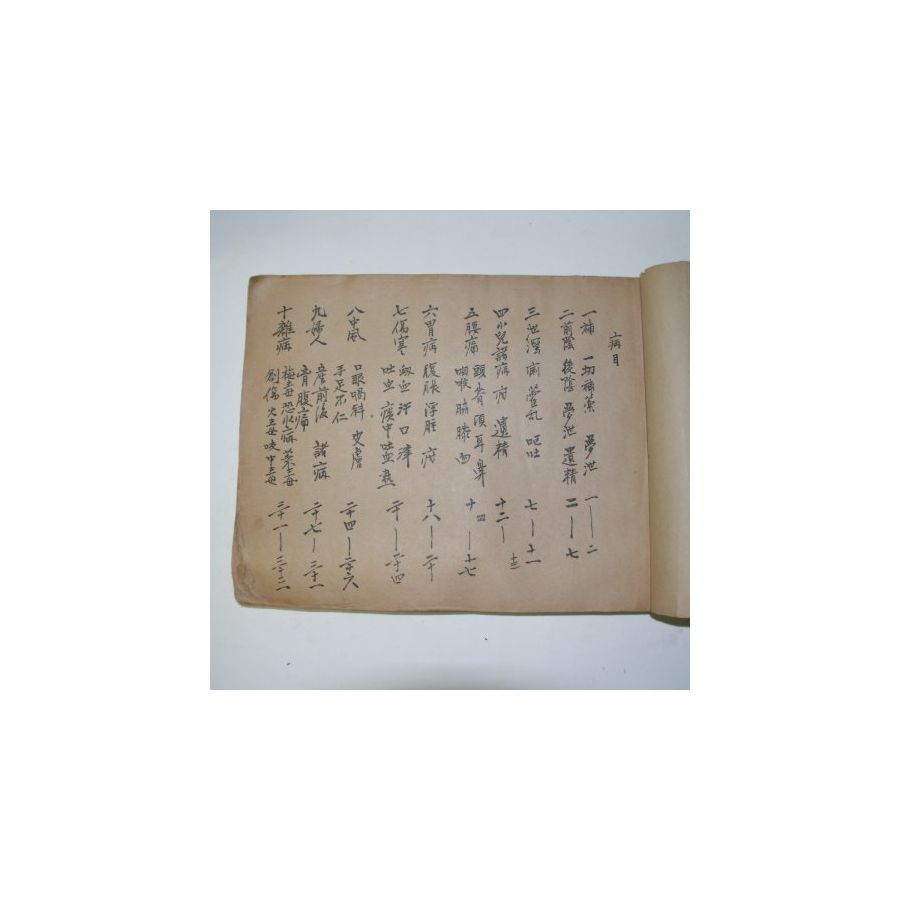 病目
一補 一切補藥 夢泄 一—二
二前陰 後陰 夢泄 遺精 二—七
三泄瀉 霍乱 嘔吐 七—十一
四小兒諸病 遺精 十二—十三
五腰痛 頭 背 項 耳 鼻
咽喉 脇 膝 面 十四—十七
六胃病 腹脹 浮腫 十八—二十
七傷寒 衄血 汗 口 津
吐血 痰中吐血 二十—二十四
八中風 口眼喎斜 皮膚
手足不仁 二十四—二十六
九婦人 産前後 諸病
腹痛 二十七—三十一
十雜病 恐水病
創傷 三十一—三十二